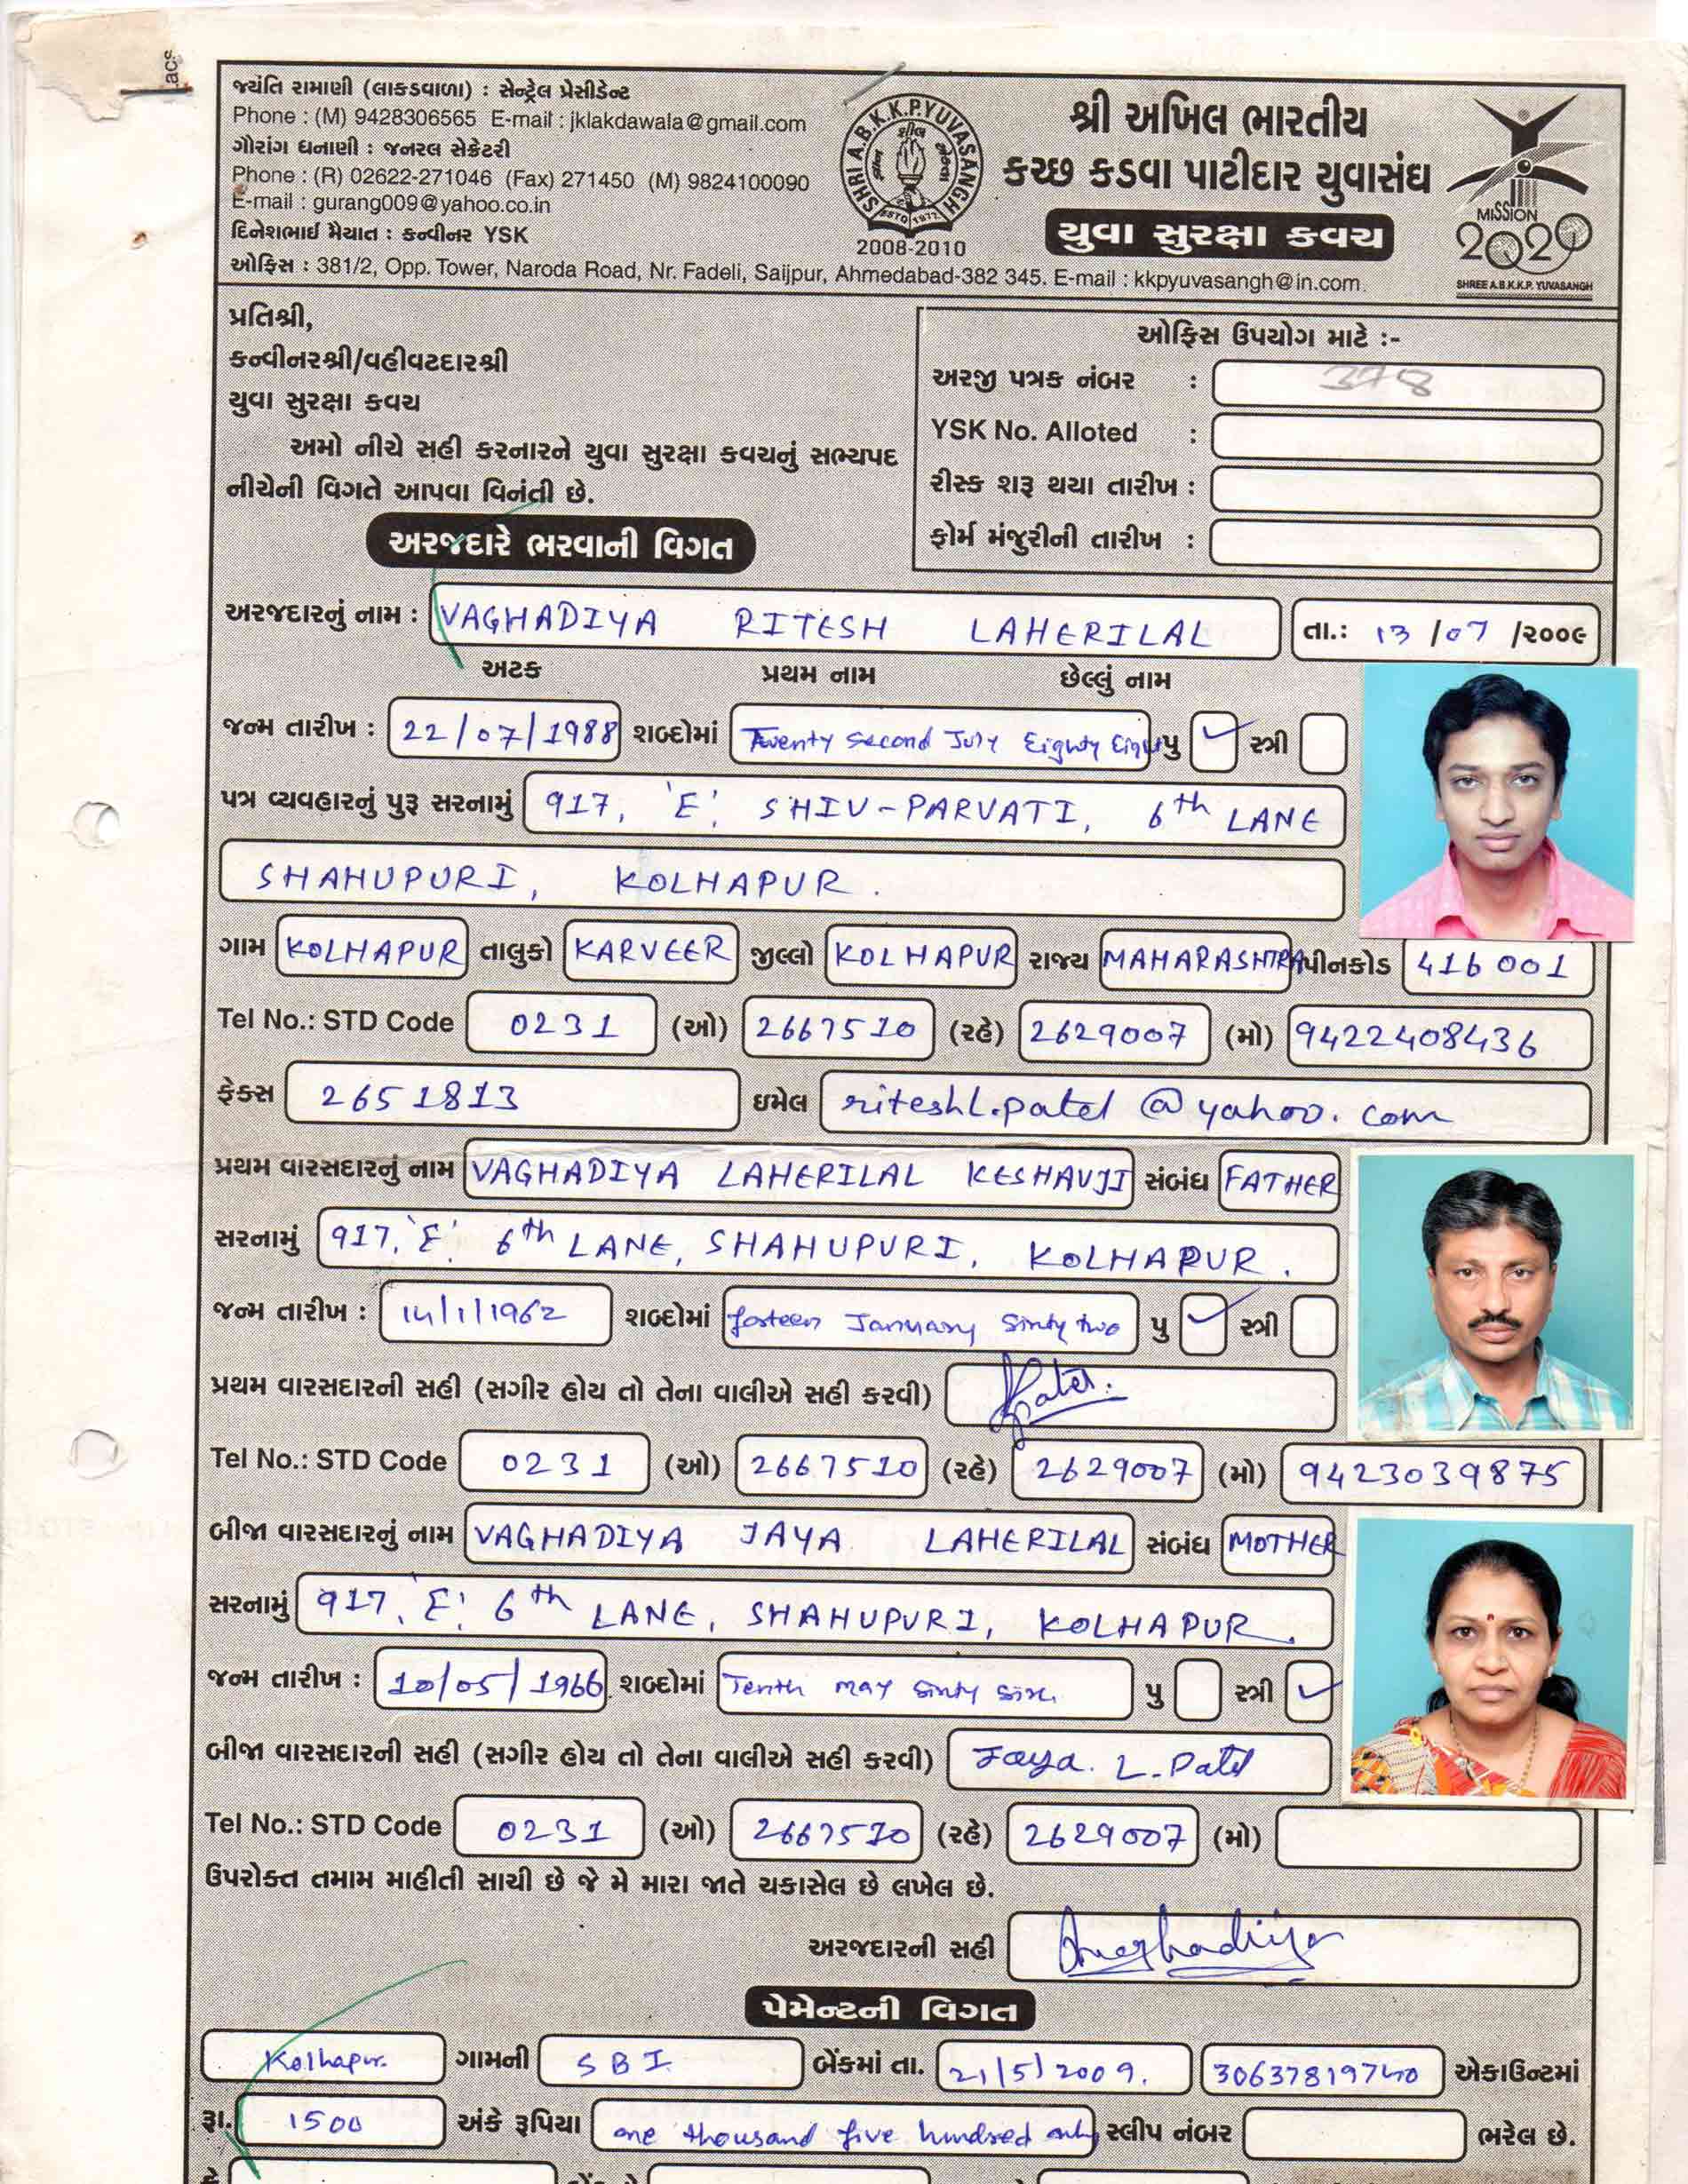 lacs
જ્યંતિ રામાણી (લાકડવાળા) : સેન્ટ્રેલ પ્રેસીડેન્ટ
Phone : (M) 9428306565 E-mail : jklakdawala@gmail.com
ગૌરાંગ ધનાણી : જનરલ સેક્રેટરી
Phone : (R) 02622-271046 (Fax) 271450 (M) 9824100090
E-mail : gurang009@yahoo.co.in
દિનેશભાઈ મૈયાત : કન્વીનર YSK
SHRI A.B.K.K.P.YUVASANGH
ESTD 1977
2008-2010
શ્રી અખિલ ભારતીય
કચ્છ કડવા પાટીદાર યુવાસંઘ
યુવા સુરક્ષા કવચ
MISSION
2020
SHREE A.B.K.K.P. YUVASANGH
ઓફિસ : 381/2, Opp. Tower, Naroda Road, Nr. Fadeli, Saijpur, Ahmedabad-382 345. E-mail : kkpyuvasangh@in.com.
પ્રતિશ્રી,
કન્વીનરશ્રી/વહીવટદારશ્રી
યુવા સુરક્ષા કવચ
અમો નીચે સહી કરનારને યુવા સુરક્ષા કવચનું સભ્યપદ
નીચેની વિગતે આપવા વિનંતી છે.
ઓફિસ ઉપયોગ માટે :-
અરજી પત્રક નંબર : 378
YSK No. Alloted :
રીસ્ક શરૂ થયા તારીખ :
ફોર્મ મંજુરીની તારીખ :
અરજદારે ભરવાની વિગત
અરજદારનું નામ : VAGHADIYA RITESH LAHERILAL તા.: 13 /07 /૨૦૦૯
અટક પ્રથમ નામ છેલ્લું નામ
જન્મ તારીખ : 22/07/1988 શબ્દોમાં Twenty second July Eighty Eight પુ ✓ સ્ત્રી
પત્ર વ્યવહારનું પુરૂ સરનામું 917, 'E', SHIV-PARVATI, 6th LANE
SHAHUPURI, KOLHAPUR.
ગામ KOLHAPUR તાલુકો KARVEER જીલ્લો KOLHAPUR રાજ્ય MAHARASHTRA પીનકોડ 416 001
Tel No.: STD Code 0231 (ઓ) 2667510 (રહે) 2629007 (મો) 9422408436
ફેક્સ 2651813 ઇમેલ riteshl.patel@yahoo.com
પ્રથમ વારસદારનું નામ VAGHADIYA LAHERILAL KESHAVJI સંબંધ FATHER
સરનામું 917, 'E', 6th LANE, SHAHUPURI, KOLHAPUR.
જન્મ તારીખ : 14/1/1962 શબ્દોમાં forteen January Sinty two પુ ✓ સ્ત્રી
પ્રથમ વારસદારની સહી (સગીર હોય તો તેના વાલીએ સહી કરવી)
Tel No.: STD Code 0231 (ઓ) 2667510 (રહે) 2629007 (મો) 9423039875
બીજા વારસદારનું નામ VAGHADIYA JAYA LAHERILAL સંબંધ MOTHER
સરનામું 917, 'E', 6th LANE, SHAHUPURI, KOLHAPUR.
જન્મ તારીખ : 10/05/1966 શબ્દોમાં Tenth may Sinty Six. પુ સ્ત્રી ✓
બીજા વારસદારની સહી (સગીર હોય તો તેના વાલીએ સહી કરવી) Jaya. L. Patel
Tel No.: STD Code 0231 (ઓ) 2667510 (રહે) 2629007 (મો)
ઉપરોક્ત તમામ માહીતી સાચી છે જે મે મારા જાતે ચકાસેલ છે લખેલ છે.
અરજદારની સહી
પેમેન્ટની વિગત
Kolhapur. ગામની SBI બેંકમાં તા. 21/5/2009. 30637819740 એકાઉન્ટમાં
રૂા. 1500 અંકે રૂપિયા one thousand five hundred only સ્લીપ નંબર ભરેલ છે.